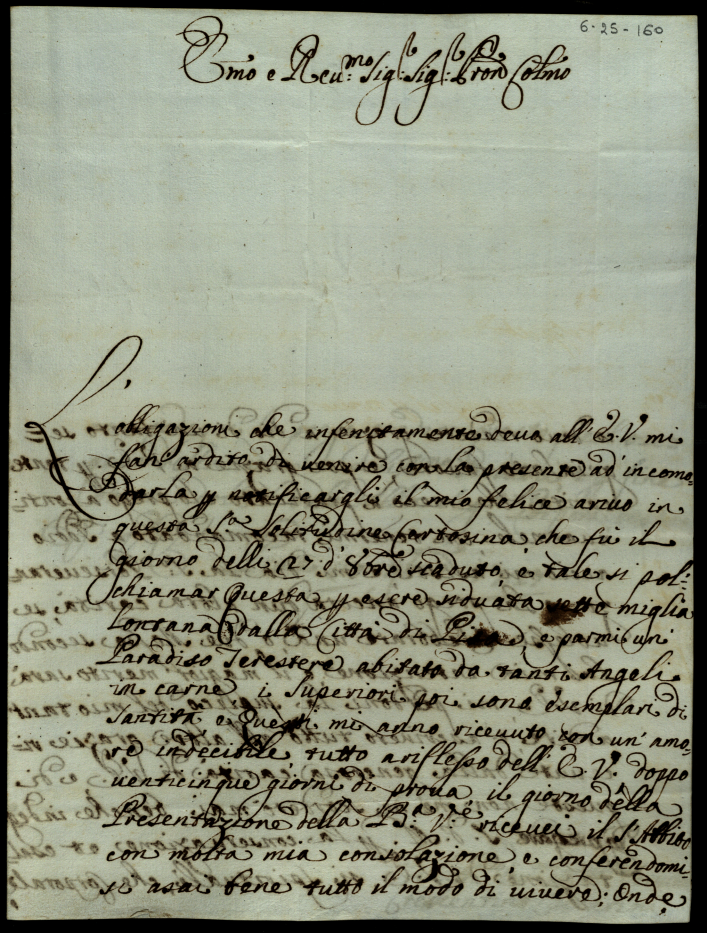 6-25-160
Emo e Reu:mo Sig:r Sig:r Pron Colmo
L'
obligazioni che infenitamente devo all' E. V. mi
fan' ardito di venire con la presente ad' incomo„
darla p notificargli il mio felice arivo in
questa S.ta Solitudine Certosina che fù il
giorno delli 27 d' 8bre scaduto, e tale si pol:
chiamar questa, p esere siduata sette miglia
lontana dalla Città di Pisa, e parmi un'
Paradiso Terestere abitato da tanti Angeli
in carne i Superiori poi sono esemplari di
Santità e questi mi anno ricevuto con un' amo„
re indecibile, tutto a riflesso dell' E. V. doppo
venticinque giorni di prova il giorno della
Presentazione della B.a V.e ricevei il S. Abbito
con molta mia consolazione, e conferendomi„
si asai bene tutto il modo di vivere; Onde